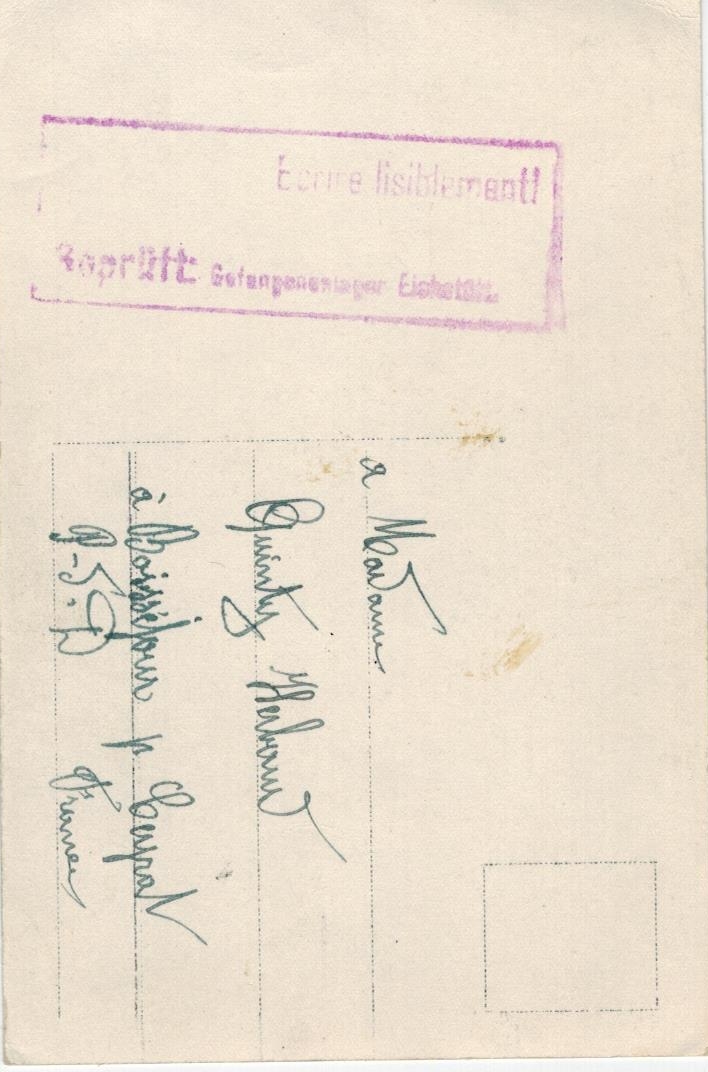 Ecrire lisiblement!
Geprüft: Gefangenenlager Eichstätt.
a Madame
Quinty Herbaud
à Boisséjour p Ceyrat
P-5-D France